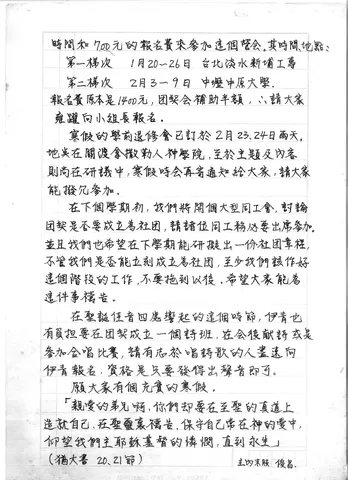 時間和700元的報名費來參加這個營會。其時間.地點:
第一梯次 1月20~26日 台北淡水新埔工專
第二梯次 2月3~9日 中壢中原大學.
報名費原本是1400元,團契會補助半額,請大家
踴躍向小組長報名.
寒假的學前退修會已訂於2月23.24日兩天,
地点在關渡會撒勒人神學院,至於主題及內容
則尚在研議中,寒假時會再發通知給大家,請大家
能撥冗參加.
在下個學期初,我們將開個大型同工會,討論
團契是否要成立為社團,請諸位同工務必要出席參加.
並且我們也希望在下學期能研擬出一份社團章程,
不管我們是否能立刻成立社團,至少我們該作好
這個階段的工作,不要拖到以後.希望大家能為
這件事禱告.
在聖誕佳音四處響起的這個時節,伊音也
有負担要在团契成立一個詩班,在会後献詩或是
參加合唱比賽,請有志於唱詩歌的人盡速向
伊音報名,資格是只要發得出聲音即可.
願大家有個充實的寒假.
「親愛的弟兄啊,你們卻要在至聖的真道上
造就自己,在聖靈裏禱告.保守自己常在神的愛中,
仰望我們主耶穌基督的憐憫,直到永生」
(猶大書20、21節) 主內末肢 俊昌.